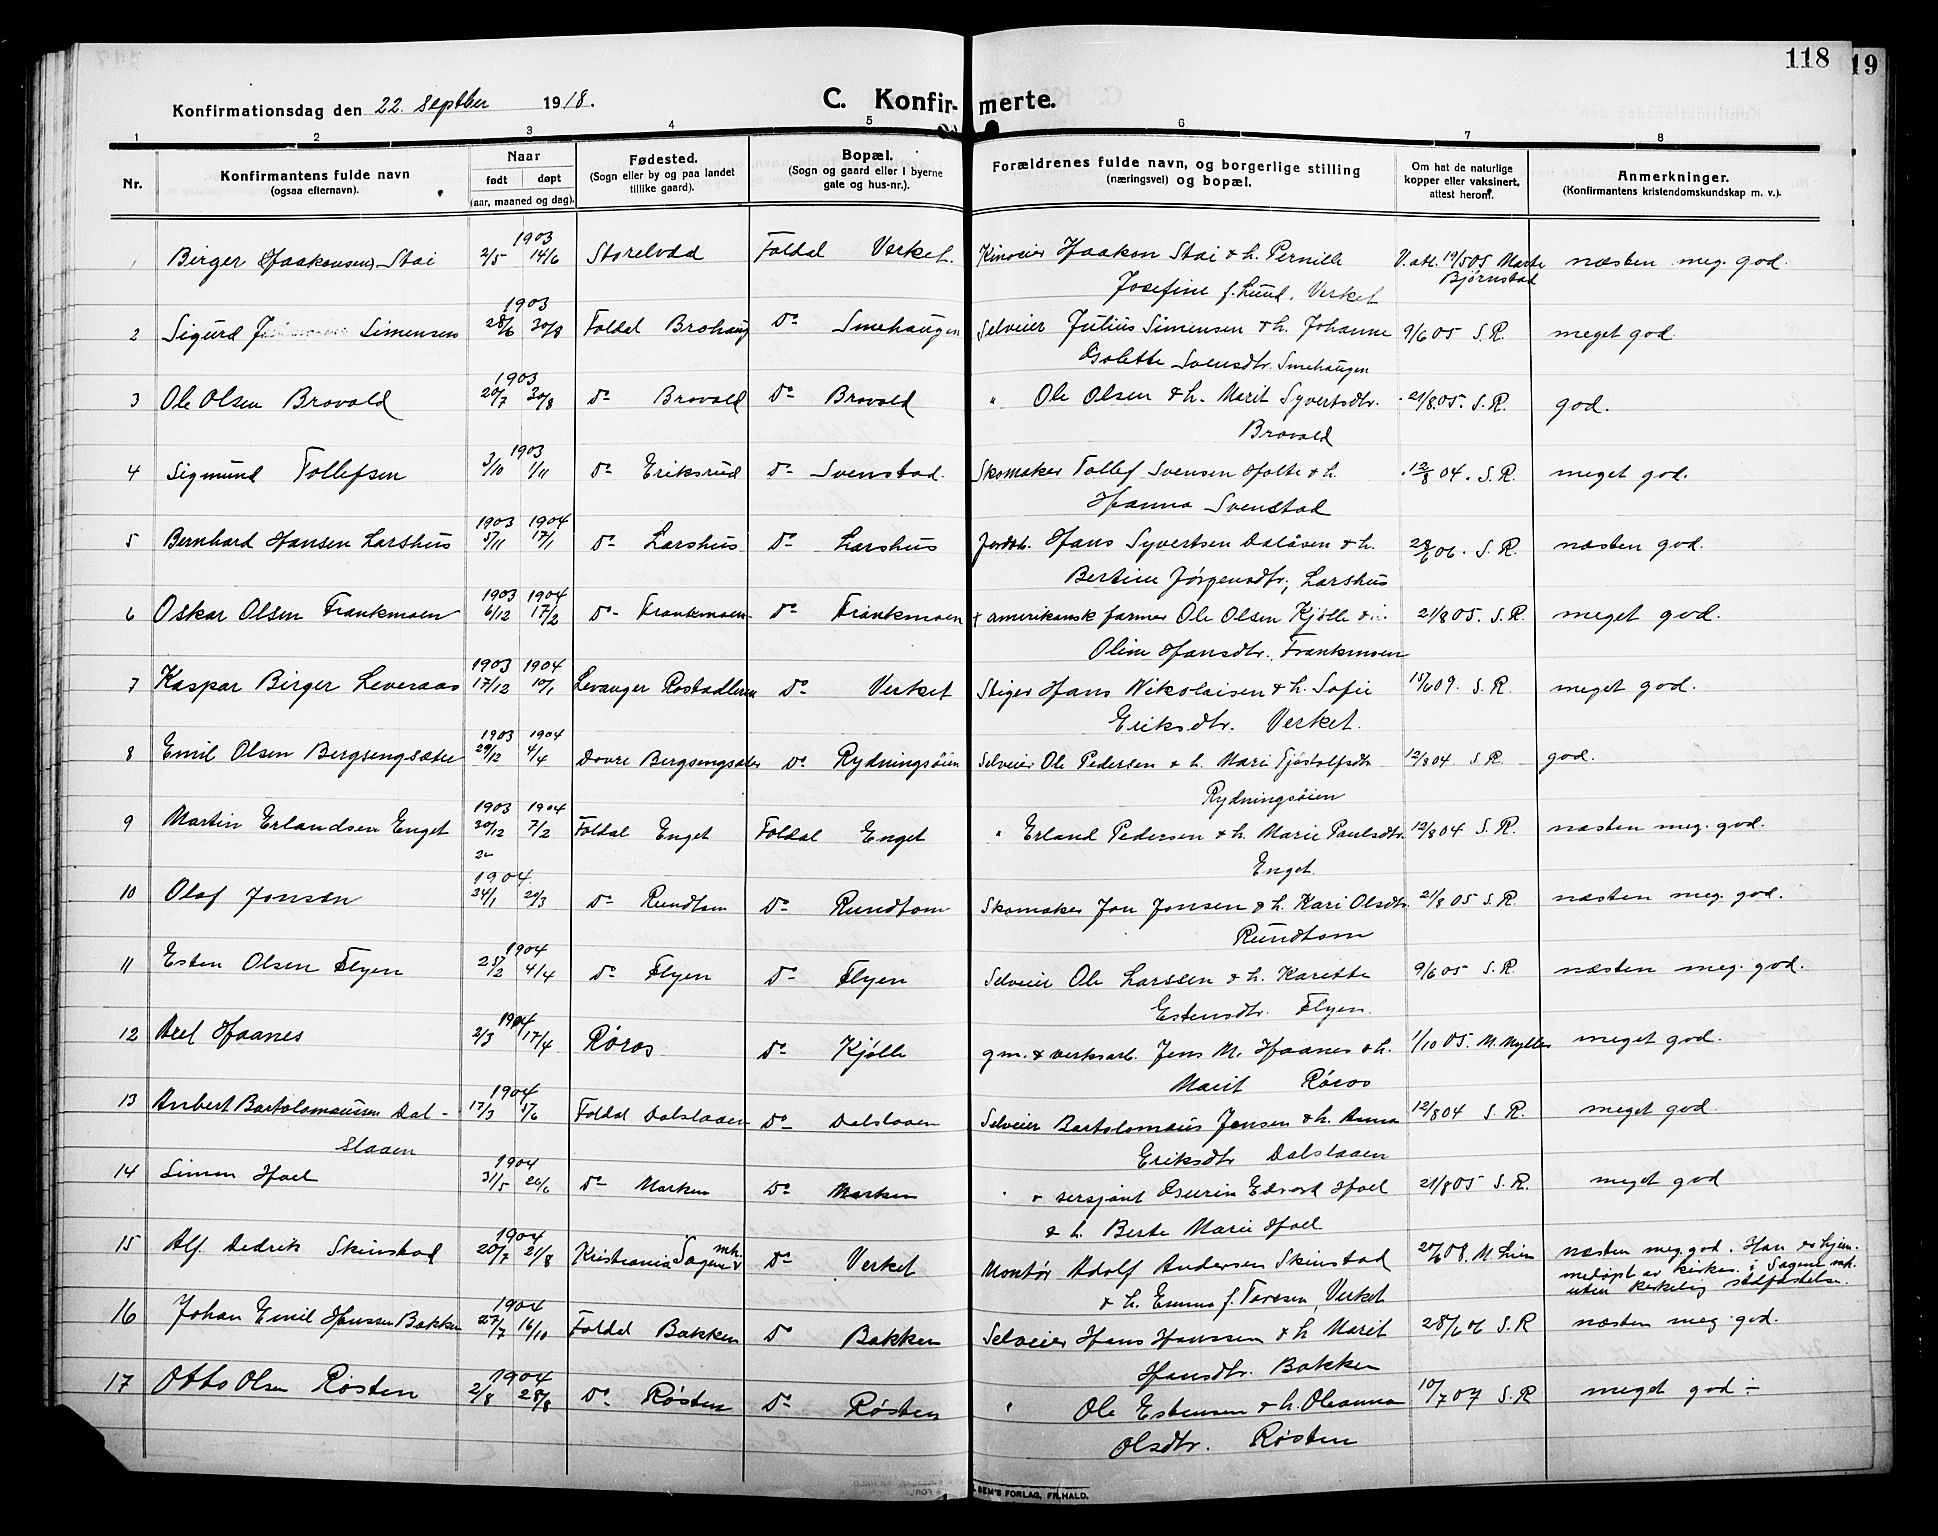 118
19
Konfirmationsdag den 22. septber 1918.
C. Konfirmerte.
1 2 3 4 5 6 7 8
Nr.
Konfirmantens fulde navn
(ogsaa efternavn).
Naar
født døpt
(aar, maaned og dag).
Fødested.
(Sogn eller by og paa landet
tillike gaard).
Bopæl.
(Sogn og gaard eller i byerne
gate og hus-nr.).
Forældrenes fulde navn, og borgerlige stilling
(næringsvei) og bopæl.
Om hat de naturlige
kopper eller vaksinert,
attest herom.
Anmerkninger.
(Konfirmantens kristendomskundskap m. v.).
1903
1 Birger Haakonsen Stai 2/5 14/6 Storelvdal Foldal Verket. Kinoeier Haakon Stai & h. Pernille V.att. 19/5 05 Marte næsten meg. god.
Josefine f. Lund, Verket Bjørnstad
1903
2 Sigurd Simensen 28/6 30/8 Foldal Brohaug Do Smehaugen Selveier Julius Simensen & h. Johanne 9/6 05 S. R. meget god.
Svensdtr. Smehaugen
1903
3 Ole Olsen Brovold 20/7 30/8 Do Brovold Do Brovold " Ole Olsen & h. Marit Syvertsdtr. 21/8 05. S. R. god.
Brovold
1903
4 Sigmund Tollefsen 3/10 1/11 Do Eriksrud Do Svenstad. Skomaker Tollef Svensen Holte & h. 12/8 04. S. R. meget god.
Hanna Svenstad
1903 1904
5 Bernhard Hansen Larshus 5/11 17/1 Do Larshus Do Larshus Jordbr. Hans Syvertsen Dalåsen & h. 28/6 06. S. R. næsten god.
Bertine Jørgensdtr, Larshus
1903 1904
6 Oskar Olsen Frankmoen 6/12 17/2 Do Frankmoen Do Frankmoen + amerikansk farmer Ole Olsen Kjølle & h. 21/8 05. S. R. meget god.
Oline Hansdtr. Frankmoen
1903 1904
7 Kaspar Birger Leveraas 17/12 10/1 Levanger Rostadleren Do Verket Stiger Hans Nikolaisen & h. Sofie 15/6 09. S. R. meget god.
Eriksdtr. Verket.
1903 1904
8 Emil Olsen Bergsengsæter 29/12 4/4 Dovre Bergsengsæter Do Rydningsøien Selveier Ole Pedersen & h. Mari Tjøstolfsdtr 12/8 04 S. R. god.
Rydningsøien
1903 1904
9 Martin Erlandsen Enget 30/12 7/2 Foldal Enget Foldal Enget " Erland Pedersen & h. Marie Paulsdtr. 12/8 04 S. R. næsten meg. god.
Enget.
1904
10 Olaf Jonsen 24/1 20/3 Do Rundtom Do Rundtom Skomaker Jon Jonsen & h. Kari Olsdtr. 21/8 05 S. R. næsten meg. god.
Rundtom
1904
11 Esten Olsen Flyen 25/2 4/4 Do Flyen Do Flyen Selveier Ole Larssen & h. Karette 9/6 05 S. R. næsten meg. god.
Estensdtr. Flyen.
1904
12 Axel Haanes 2/3 17/4 Røros Do Kjølle gm. & verksarb. Jens M. Haanes & h. 1/10 05. M. Myller meget god.
Marit Røros
1904
13 Anbert Bartolomæussen Dal- 17/3 5/6 Foldal Dalslaaen Do Dalslaaen Selveier Bartolomæus Jensen & h. Anna 12/8 04 S. R. meget god.
slaaen Eriksdtr Dalslaaen
1904
14 Simen Hoel 31/5 26/6 Do Marken Do Marken " & sersjant Edvard Hoel 21/8 05 S. R. meget god
& h. Berte Marie Hoel
1904
15 Alf Dedrik Skinstad 20/7 21/8 Kristiania Sagene mh. Do Verket Montør Adolf Andersen Skinstad 20/6 08. M. Lien næsten meg. god. Han er hjem-
& h. Emma f. Taresen, Verket medøpt av kirkes. i Sagene mk.
uten kirkelig stadfæstelse.
1904
16 Johan Emil Hanssen Bakken 27/7 16/10 Foldal Bakken Do Bakken Selveier Hans Hanssen & h. Marit 28/6 06 S. R næsten meg. god.
Hansdtr. Bakken
1904
17 Otto Olsen Røsten 2/8 28/8 Do Røsten Do Røsten " Ole Estensen & h. Oleanna 10/7 07 S. R meget god.
Olsdtr. Røsten
SEM'S FORLAG, FR.HALD.